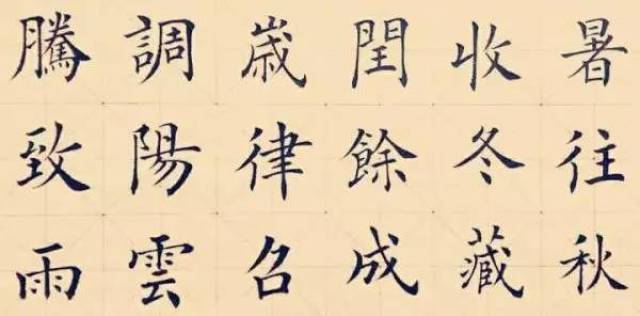 暑往秋
收冬藏
閏餘成
嵗律召
調陽雲
騰致雨